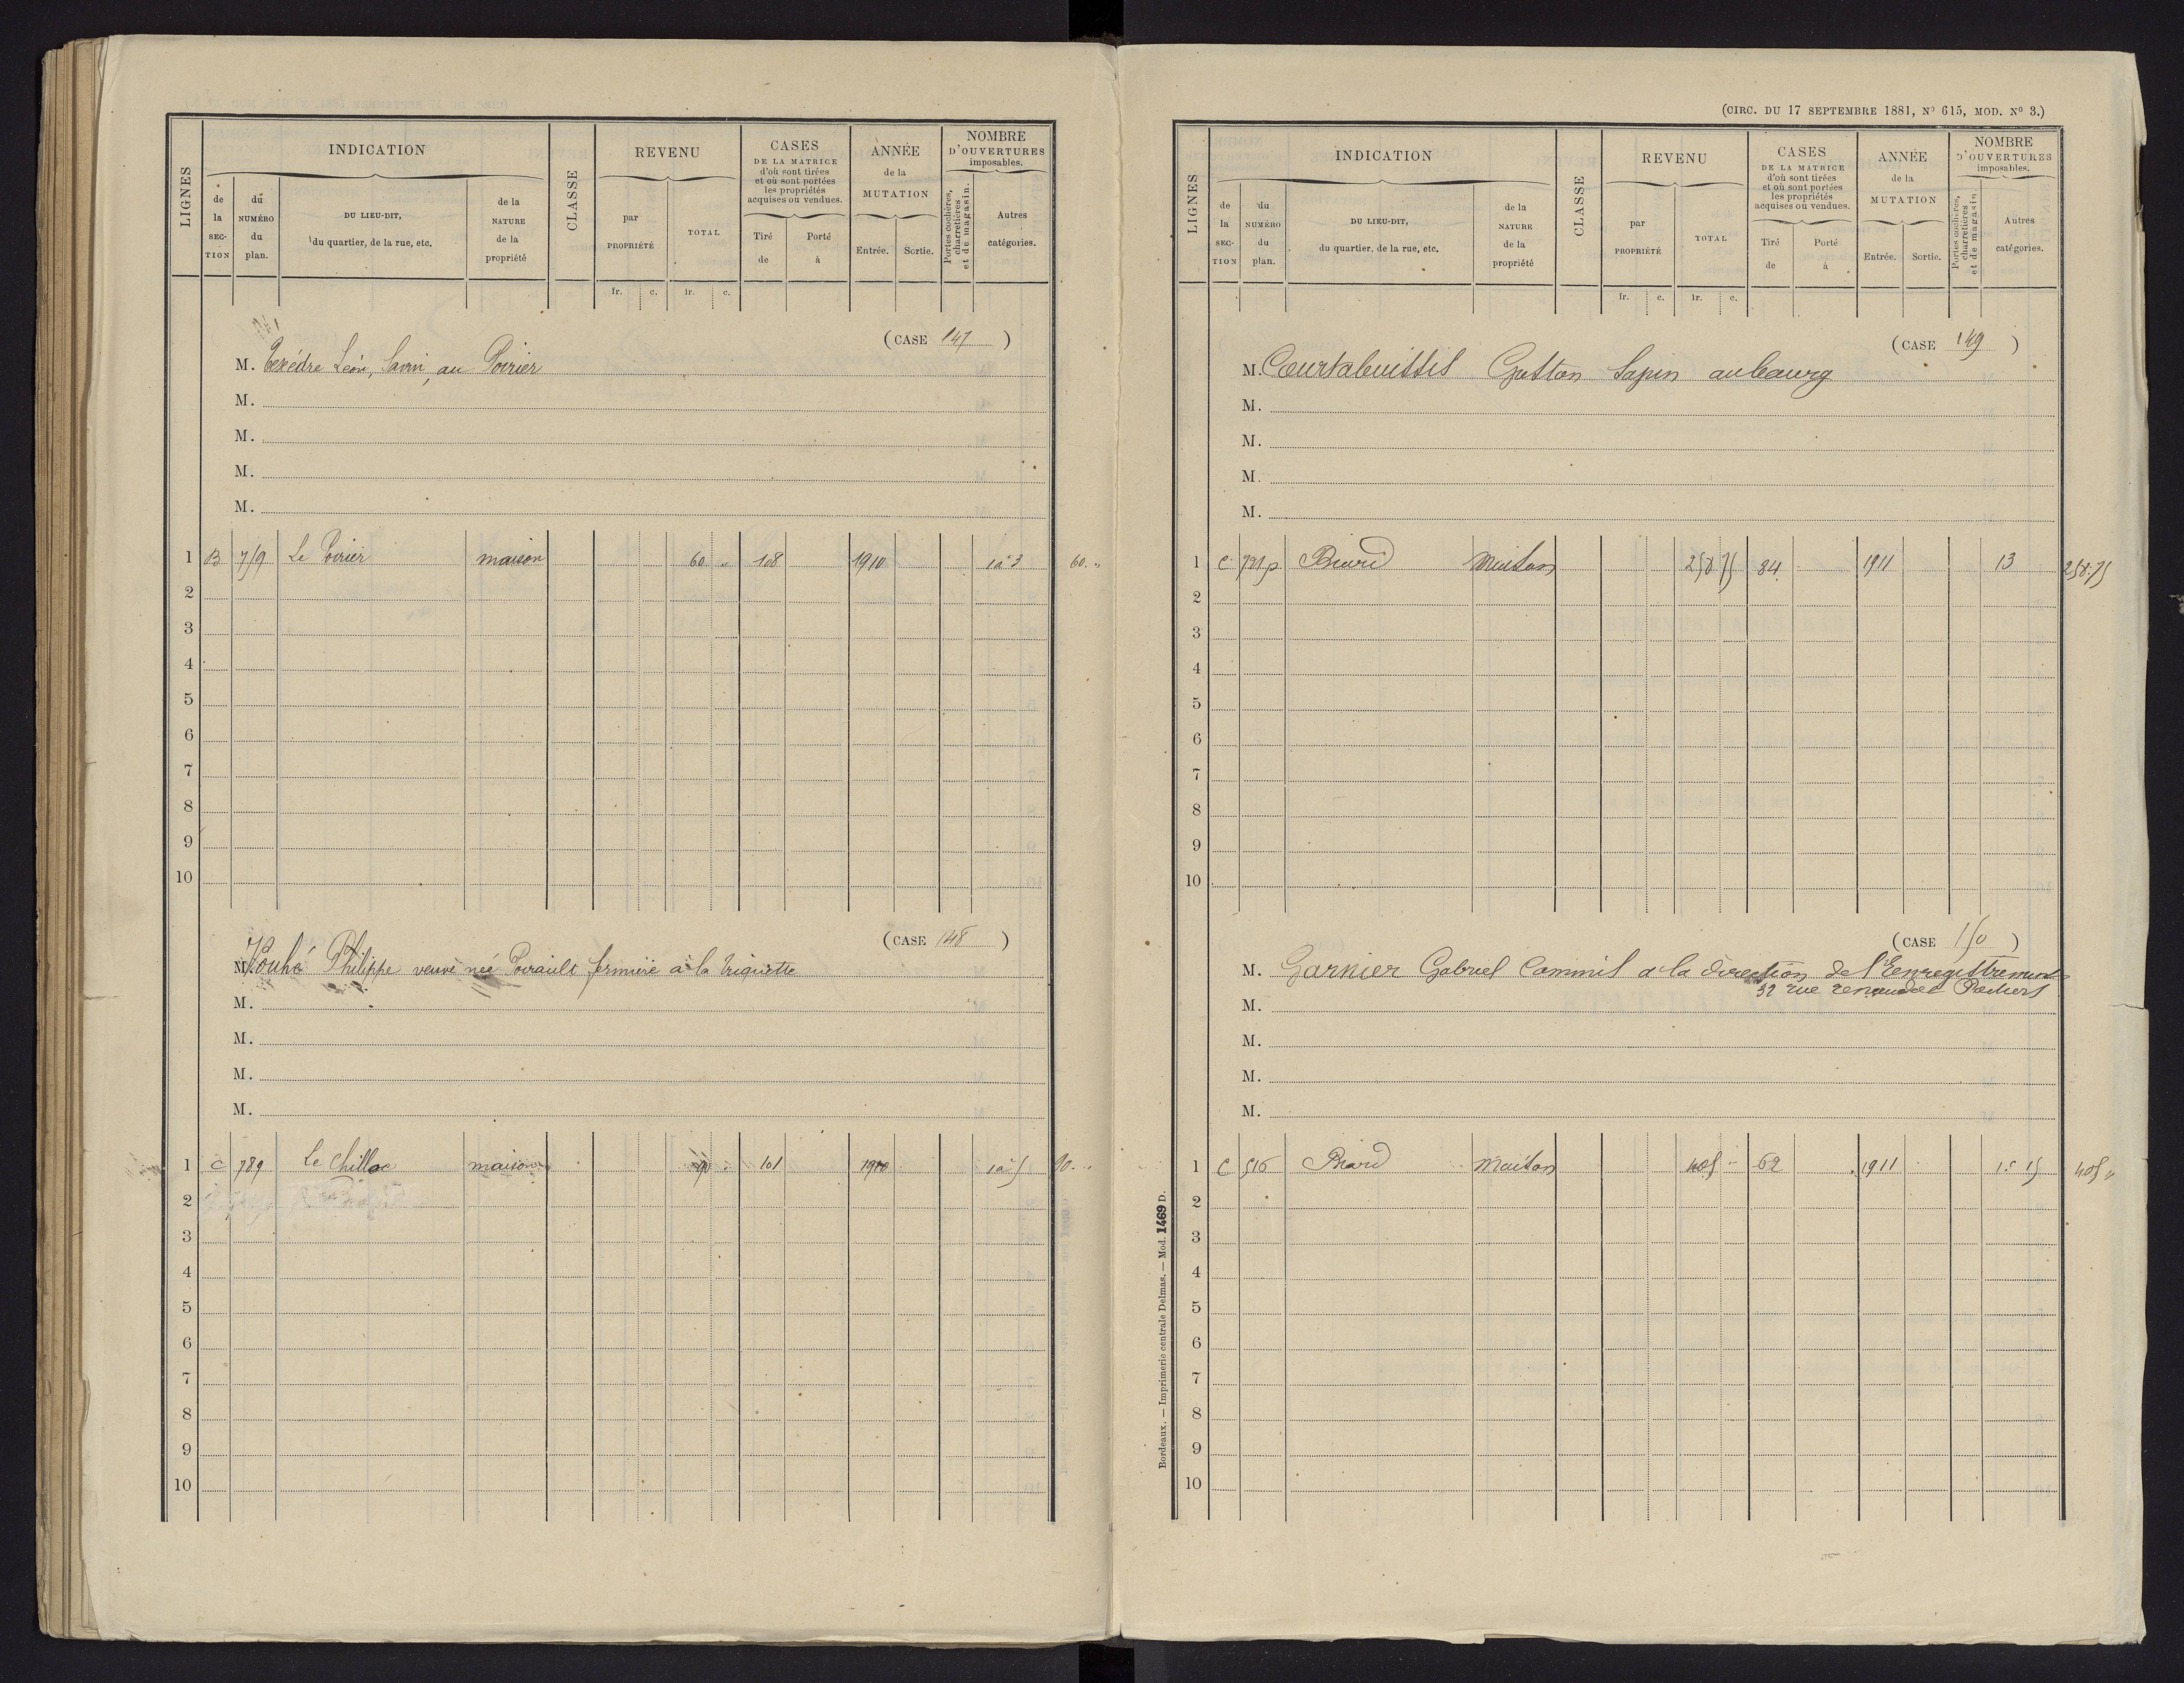 LIGNES
INDICATION
de la SECTION
du NUMÉRO du plan.
DU LIEU-DIT, du quartier, de la rue, etc.
de la NATURE de la propriété
CLASSE
REVENU
par PROPRIÉTÉ
TOTAL
fr. c. fr. c.
CASES DE LA MATRICE d'où sont tirées et où sont portées les propriétés acquises ou vendues.
Tiré de
Porté à
ANNÉE de la MUTATION
Entrée. Sortie.
NOMBRE D'OUVERTURES imposables.
Portes cochères, charretières et de magasin.
Autres catégories.
(CASE 147)
M. Léon, au Poirier
M.
M.
M.
M.
1 B 719 Le Poirier maison 60 „ 108 1910 1à3 60. „
2
3
4
5
6
7
8
9
10
(CASE 148)
M. Vouhé Philippe veuve née fermière à la
M.
M.
M.
M.
1 C 789 Le maison 101 1910 1à5
2
3
4
5
6
7
8
9
10
(CIRC. DU 17 SEPTEMBRE 1881, No 615, MOD. No 3.)
LIGNES
INDICATION
de la SECTION
du NUMÉRO du plan.
DU LIEU-DIT, du quartier, de la rue, etc.
de la NATURE de la propriété
CLASSE
REVENU
par PROPRIÉTÉ
TOTAL
fr. c. fr. c.
CASES DE LA MATRICE d'où sont tirées et où sont portées les propriétés acquises ou vendues.
Tiré de
Porté à
ANNÉE de la MUTATION
Entrée. Sortie.
NOMBRE D'OUVERTURES imposables.
Portes cochères, charretières et de magasin.
Autres catégories.
(CASE 149)
M. Gaston au bourg
M.
M.
M.
M.
1 C Biard Maison 258 75 84 1911 13 258.75
2
3
4
5
6
7
8
9
10
(CASE 150)
M. Garnier Gabriel Commis à la direction de l'Enregistrement
rue Poitiers
M.
M.
M.
M.
1 C 516 Biard Maison 405 62 1911 405 „
2
3
4
5
6
7
8
9
10
Bordeaux. — Imprimerie centrale Delmas. — Mod. 1469 D.